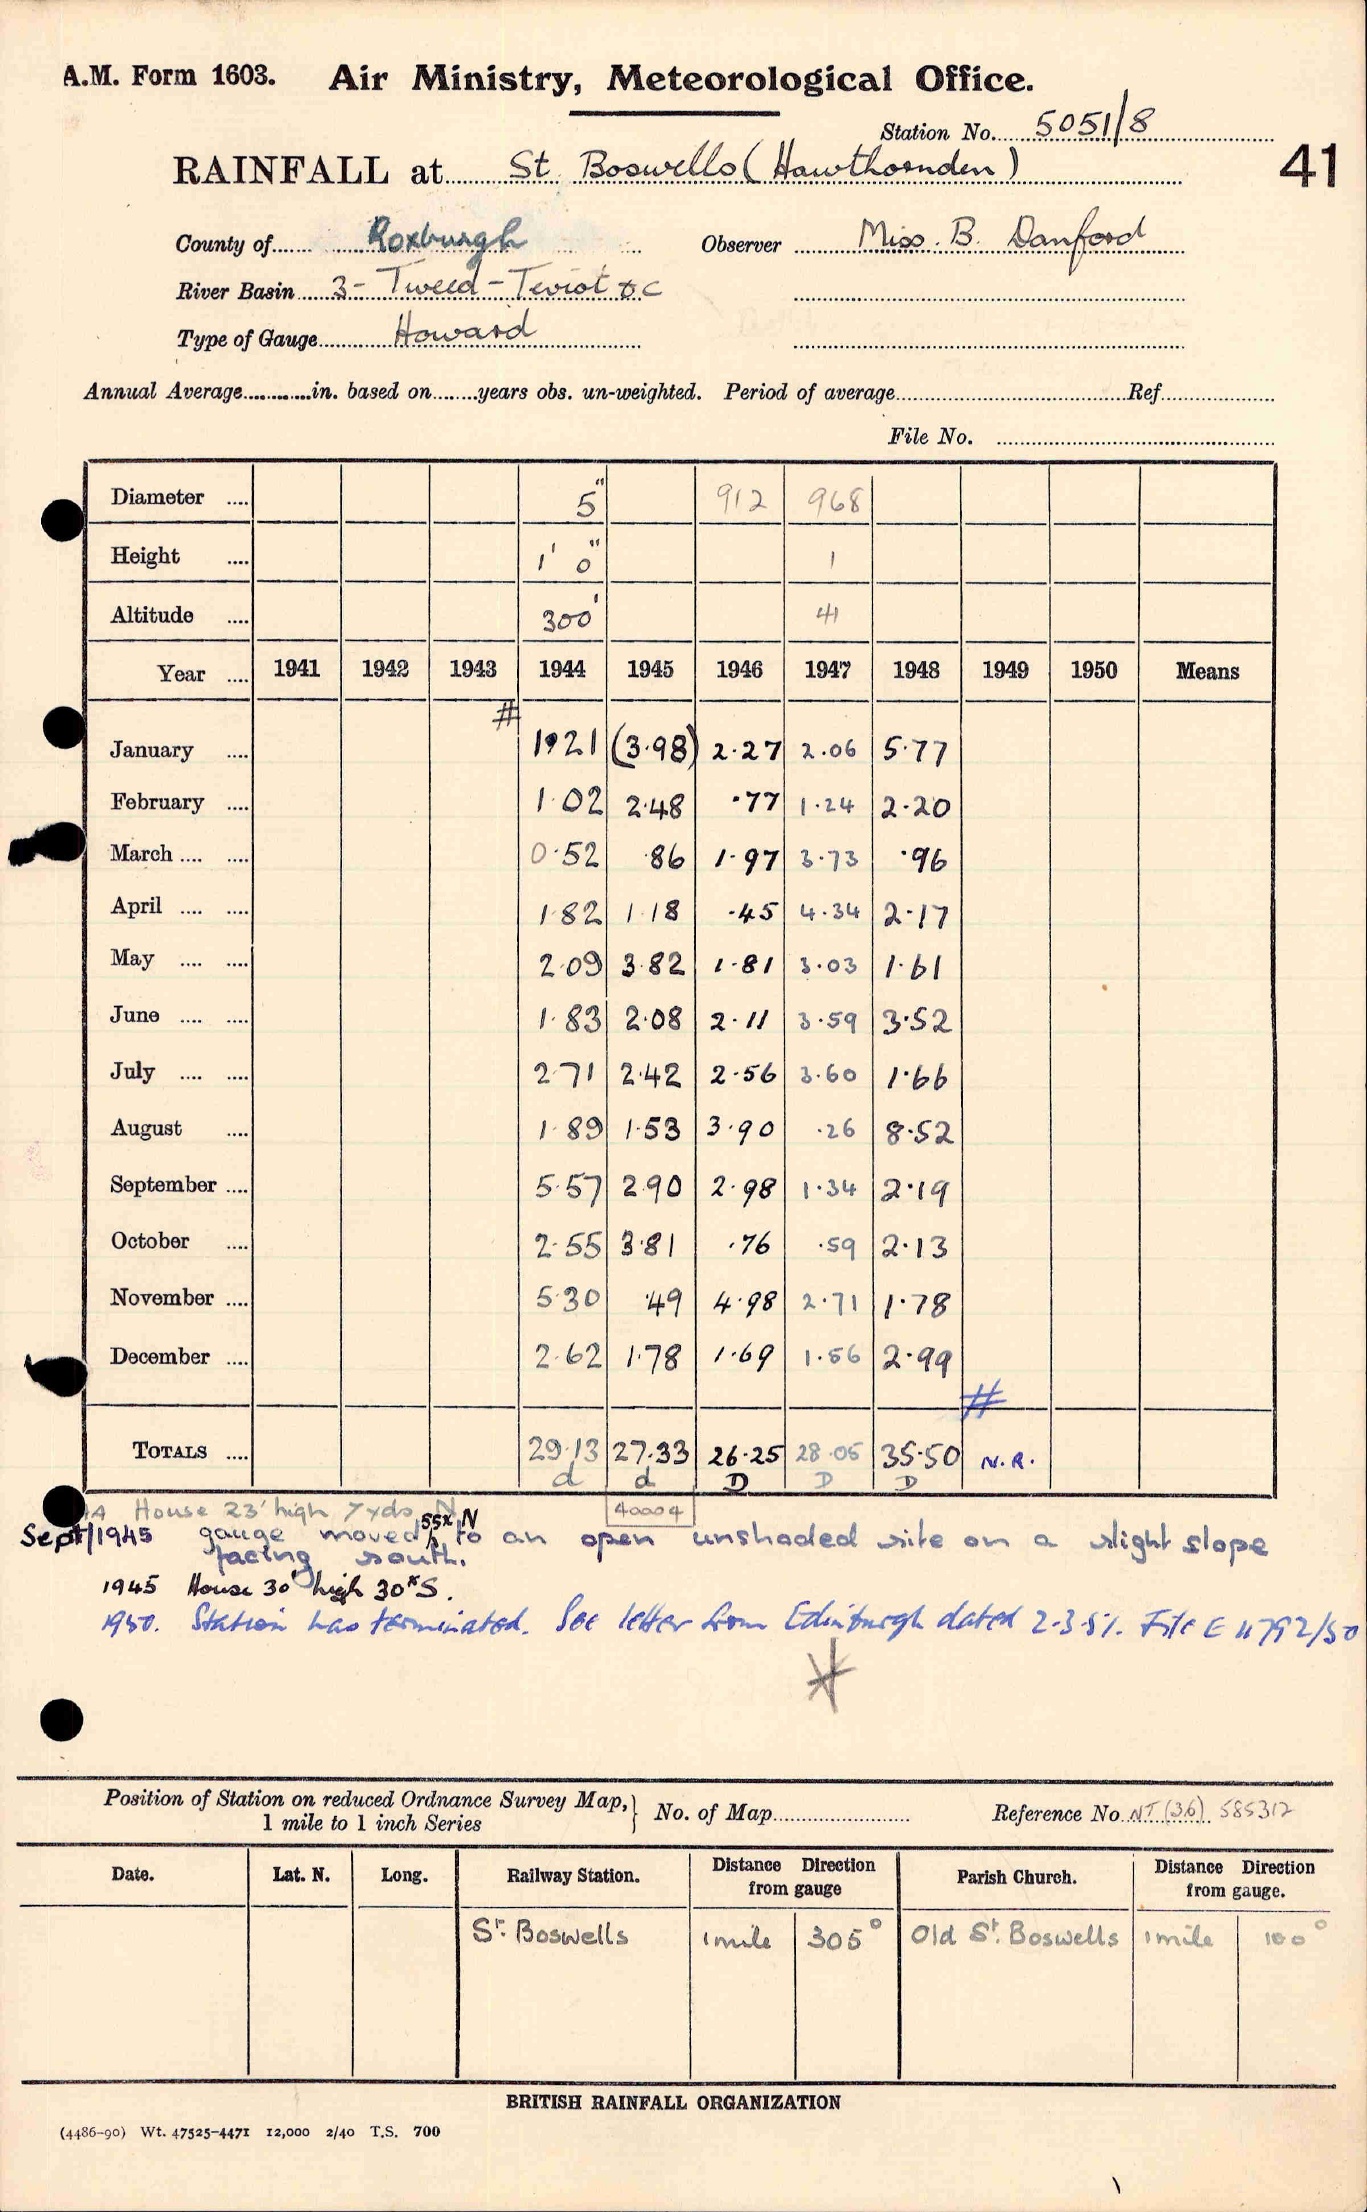 A.M. Form 1603. Air Ministry, Meteorological Office.
Station No. 5051/8
RAINFALL at St. Boswells (Hawthornden) 41
County of Roxburgh Observer Miss. B. Danford
River Basin 3 - Tweed - Teviot &c
Type of Gauge Howard
Annual Average............in. based on........years obs. un-weighted. Period of average........Ref........
File No.
Diameter .... 5" 912 968
Height .... 1' 0" 1
Altitude .... 300' 41
Year .... 1941 1942 1943 1944 1945 1946 1947 1948 1949 1950 Means
#
January .... 1.21 (3.98) 2.27 2.06 5.77
February .... 1.02 2.48 .77 1.24 2.20
March .... .... 0.52 .86 1.97 3.73 .96
April .... .... 1.82 1.18 .45 4.34 2.17
May .... .... 2.09 3.82 1.81 3.03 1.61
June .... .... 1.83 2.08 2.11 3.59 3.52
July .... .... 2.71 2.42 2.56 3.60 1.66
August .... 1.89 1.53 3.90 .26 8.52
September .... 5.57 2.90 2.98 1.34 2.19
October .... 2.55 3.81 .76 .59 2.13
November .... 5.30 .49 4.98 2.71 1.78
December .... 2.62 1.78 1.69 1.56 2.99
#
TOTALS .... 29.13 27.33 26.25 28.05 35.50 N.R.
d d D D D
House 23' high 7 yds N 40004
Sept/1945 gauge moved 55x N to an open unshaded site on a slight slope
facing south.
1945 House 30' high 30x S.
1950. Station has terminated. See letter from Edinburgh dated 2.3.51. File E 11792/50
Position of Station on reduced Ordnance Survey Map,} No. of Map........ Reference No. NT (36) 585312
1 mile to 1 inch Series
Date. Lat. N. Long. Railway Station. Distance Direction from gauge Parish Church. Distance Direction from gauge.
St. Boswells 1 mile 305° Old St. Boswells 1 mile 100°
BRITISH RAINFALL ORGANIZATION
(4486-90) Wt. 47525-4471 12,000 2/40 T.S. 700